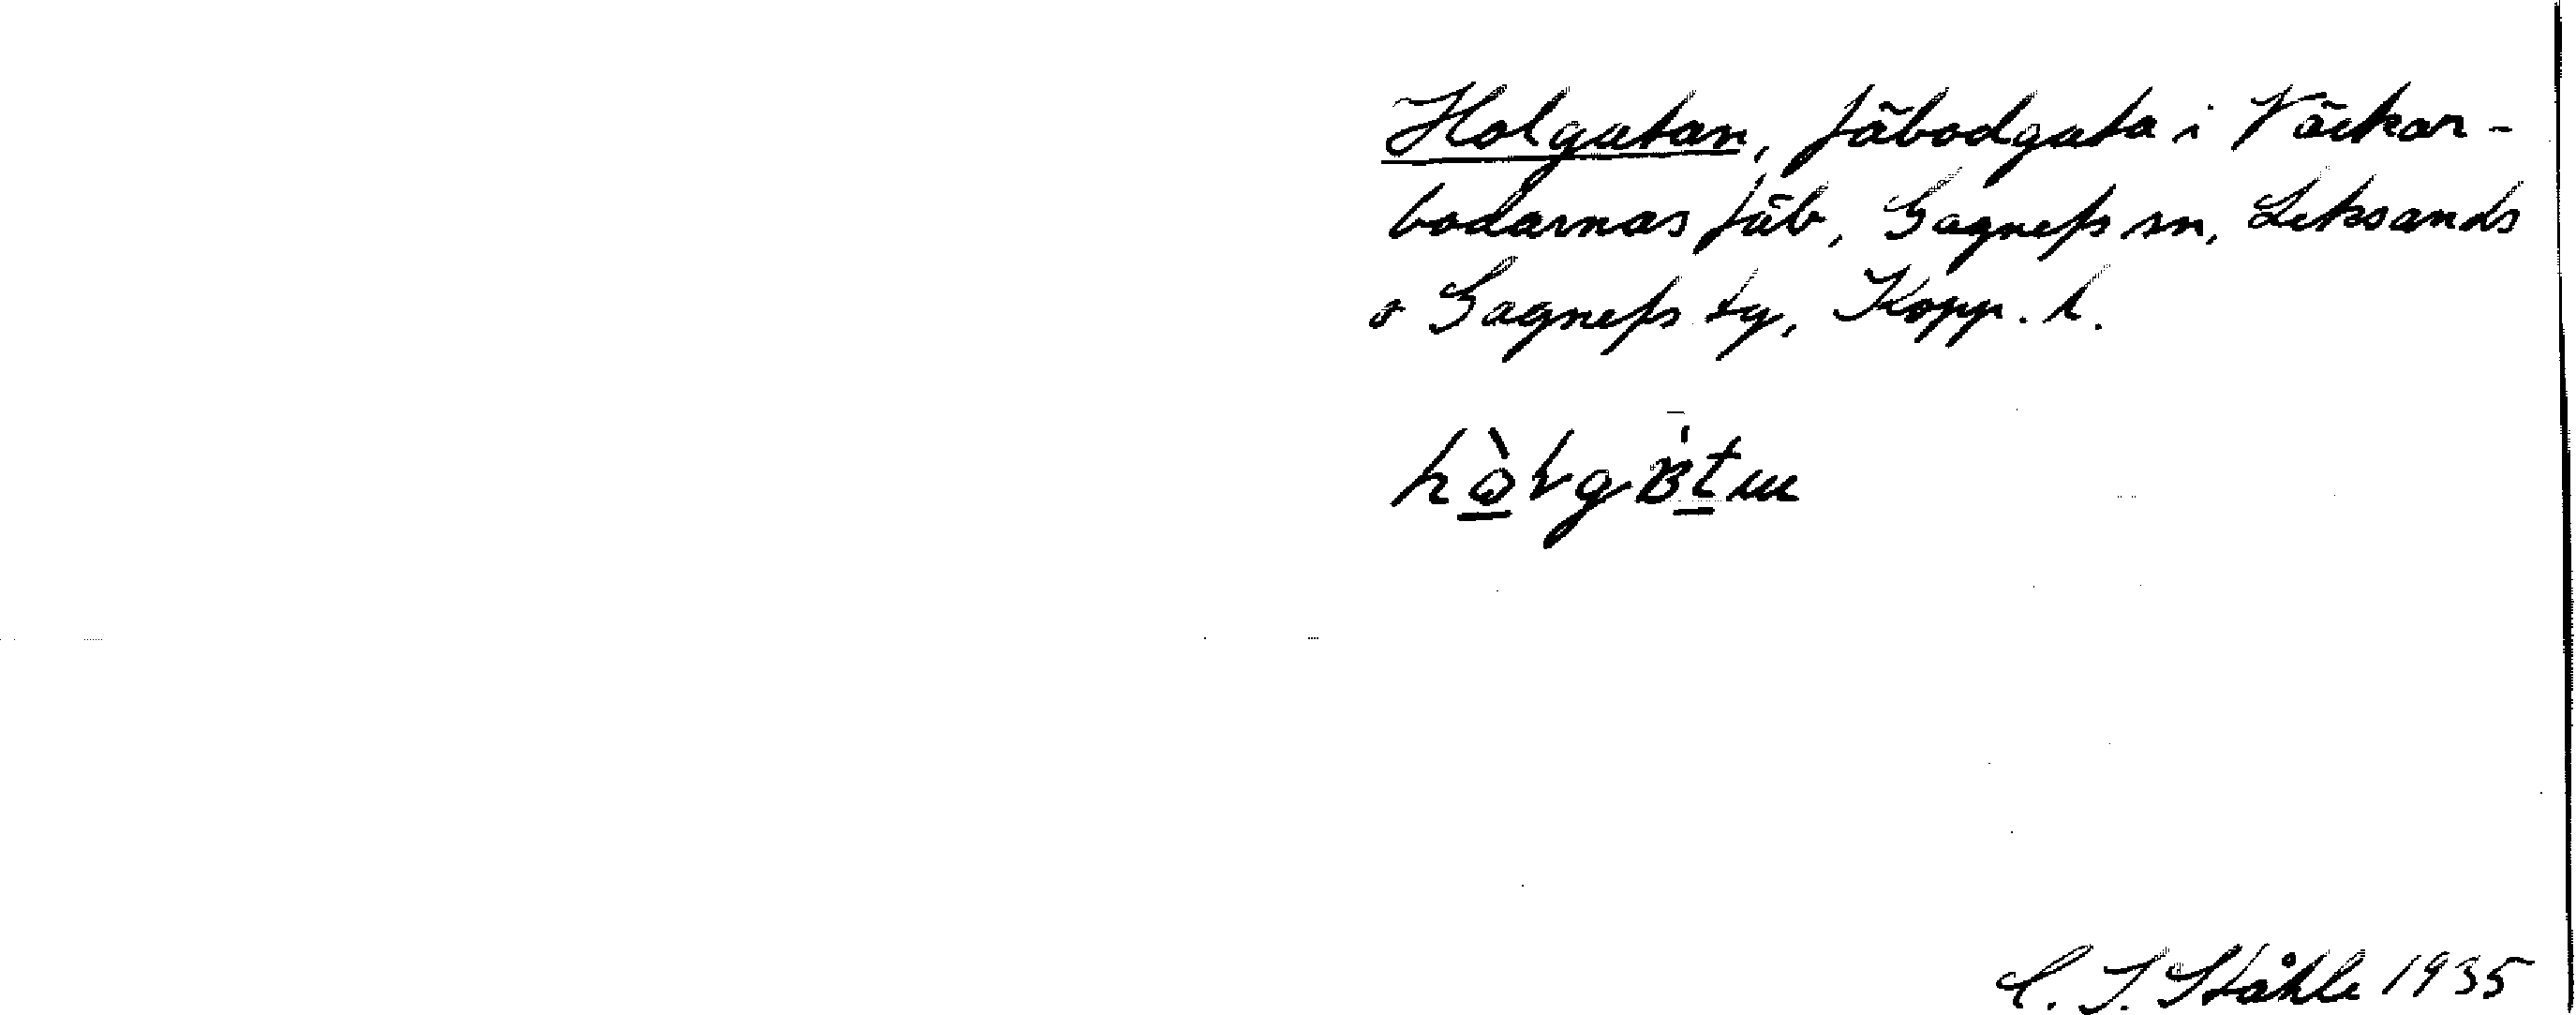 Holgatan, fäbodgata i Väckar-
bodarnas fäb, Gagnefs sn, Leksands
o Gagnefs tg, Kopp. l.
C. I. Ståhle 1935